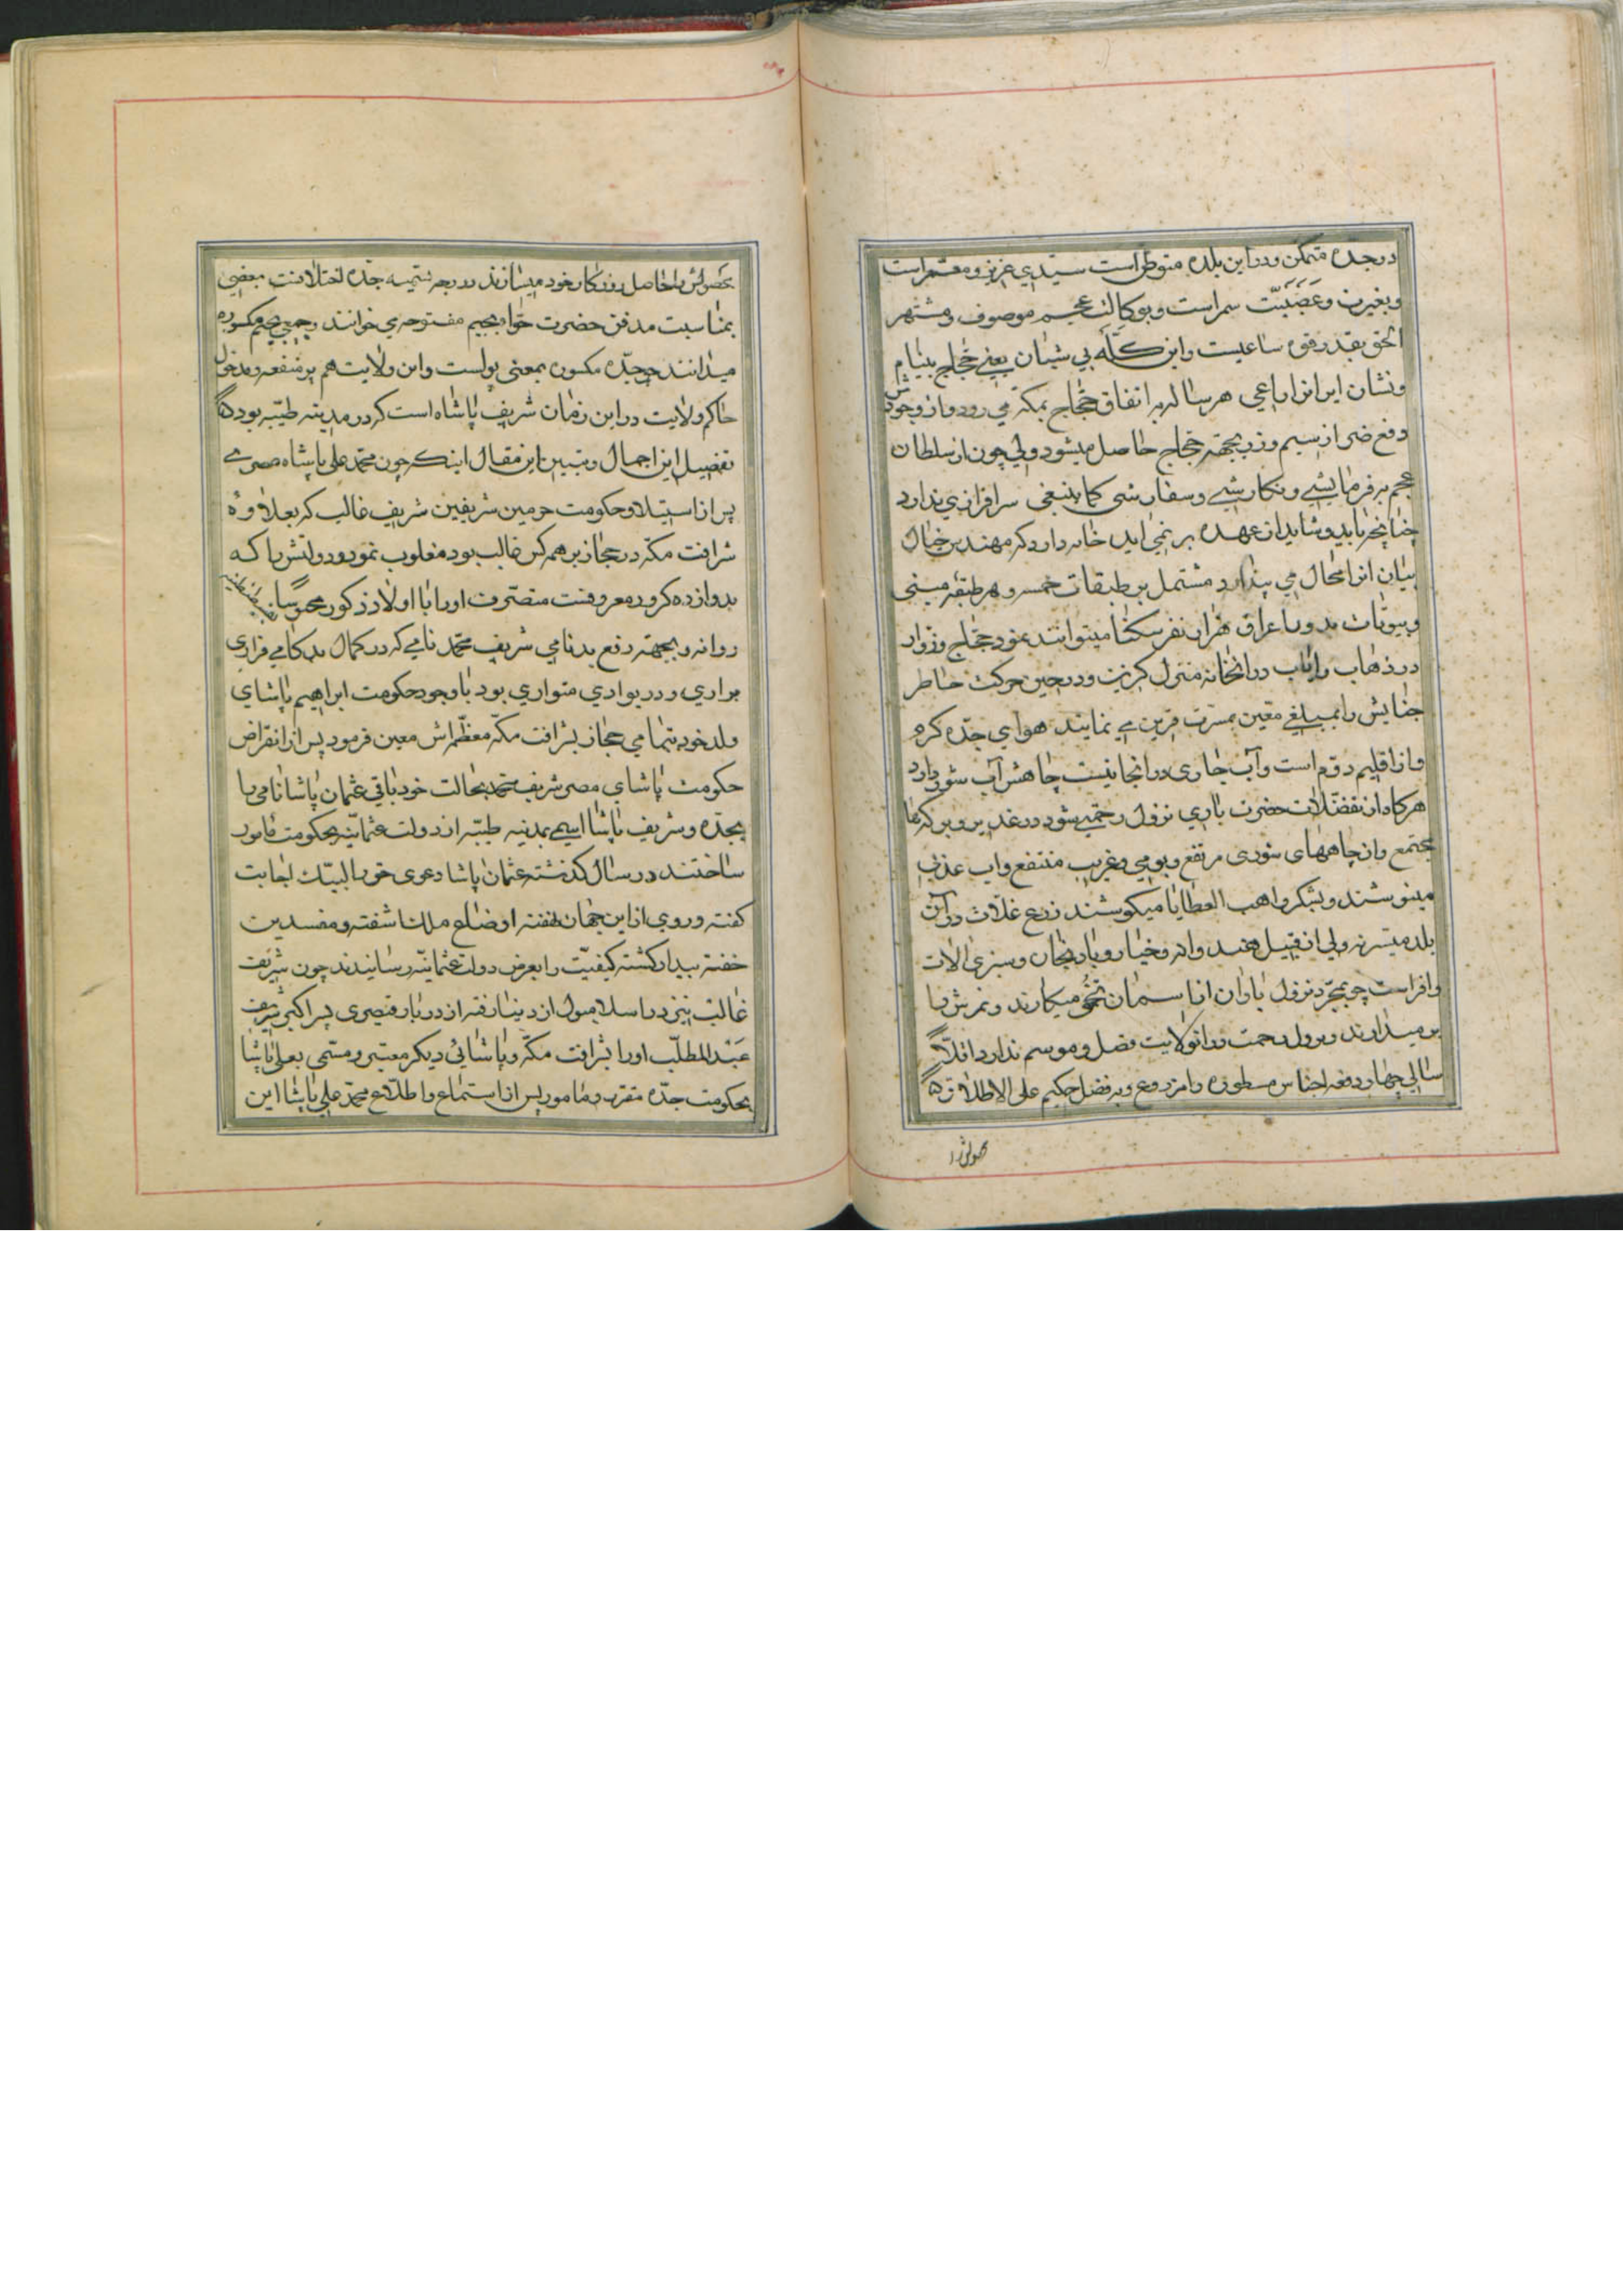 در جده متمکن و در این بلده متوطن است سیدی عزیز و معتبر است
و بغیرت و عصبیّت سمر است و بوکالت عجم موصوف و مشتهر
الحق بقدر قوه ساعیست و این کله بی شبان یعنی حجاج بینام
و نشان ایرانرا راعی هر ساله به اتفاق حجاج بمکه می رود و از وجودش
دفع ضر از سیم و زر بجهة حجاج حاصل میشود ولی چون از سلطان
عجم بفرمایشی و نکارشی و سفارشی کما ینبغی سرافرازی ندارد
چنانچه باید و شاید از عهده بر نمی اید خانه دارد که مهندس خیال
بنیان انرا محال می پندارد مشتمل بر طبقات خمسه و هر طبقه مبنی
و بیوتات بدون اغراق هزاران نفر سکنا میتوانند نمود حجاج و زوار
در ذهاب و ایاب در انخانه منزل کزینند و در حین حرکت خاطر
جنابش را بمبلغی معین بمسرت قرین می نمایند هوای جده کرم
و از اقلیم دوم است و آب جاری در انجا نیست چاهش آب شور دارد
هر کاه از تفضلات حضرت باری نزول رحمتی شود در غدیر و برکه‌ها
مجتمع و از چاههای شوری مرتفع و بومی و غریب منتفع و اب عذب
مینوشند و بشکر واهب العطایا میکوشند زرع غلات در آن
بلده میسر نه ولی از قبیل هندوانه و خیار و بادنجان و سبزی الات
وافر است چه بمجرد نزول باران از اسمان تخم میکارند و ثمرش را
بر میدارند و نزول رحمت در انولایت فصل و موسم ندارد اقلا
سالی چهار دفعه اجناس مسطوره را مزروع و بفضل حکیم علی الاطلاق
محصولش را
محصولش را حاصل روزکار خود میسازند در وجه تسمیه جده اختلافست بعضی
بمناسبت مدفن حضرت حوا بجیم مفتوحه می خوانند و جمعی بجیم مکسوره
میدانند چه جده مکسوره بمعنی پولست و این ولایت هم پر منفعه و مدخول
حاکم ولایت در این زمان شریف پاشاه است که در مدینه طیبه بوده
تفضیل این اجمال و تبیین این مقال اینکه چون محمد علی پاشاه مصری
پس از استیلا و حکومت حرمین شریفین شریف غالب که بعلاوهٔ
شرافت مکه در حجاز بر همه کس غالب بود مغلوب نمود و دولتش را که
بدوازده کرور معروفست متصرف او را با اولاد ذکور
روانه و بجهة رفع بدنامی شریف محمد نامی که در کمال بد کامی فراری
براری و در بوادی متواری بود با وجود حکومت ابراهیم پاشای
ولد خود بتمامی حجاز بشرافت مکه معظمه‌اش معین فرمود پس از انقراض
حکومت پاشای مصر شریف محمد بحالت خود باقی عثمان پاشا نامی را
بجده و شریف پاشا اسمی بمدینه طیبه از دولت عثمانیه بحکومت مامور
ساختند در سال کذشته عثمان پاشا دعوی حق را لبیک اجابت
کفته و روی از این جهان نهفته اوضاع ملک اشفته و مفسدین
خفته بیدار کشته کیفیت را بعرض دولت عثمانیه رسانیدند چون شریف
غالب نیز در اسلامبول از دنیا رفته از دربار قیصری پسر اکبر شریف
عبد المطلب او را بشرافت مکه و پاشائی دیکر معتبر و مسمی بعلی پاشا
بحکومت جده مقرر و مامور پس از استماع و اطلاع محمد علی پاشا این